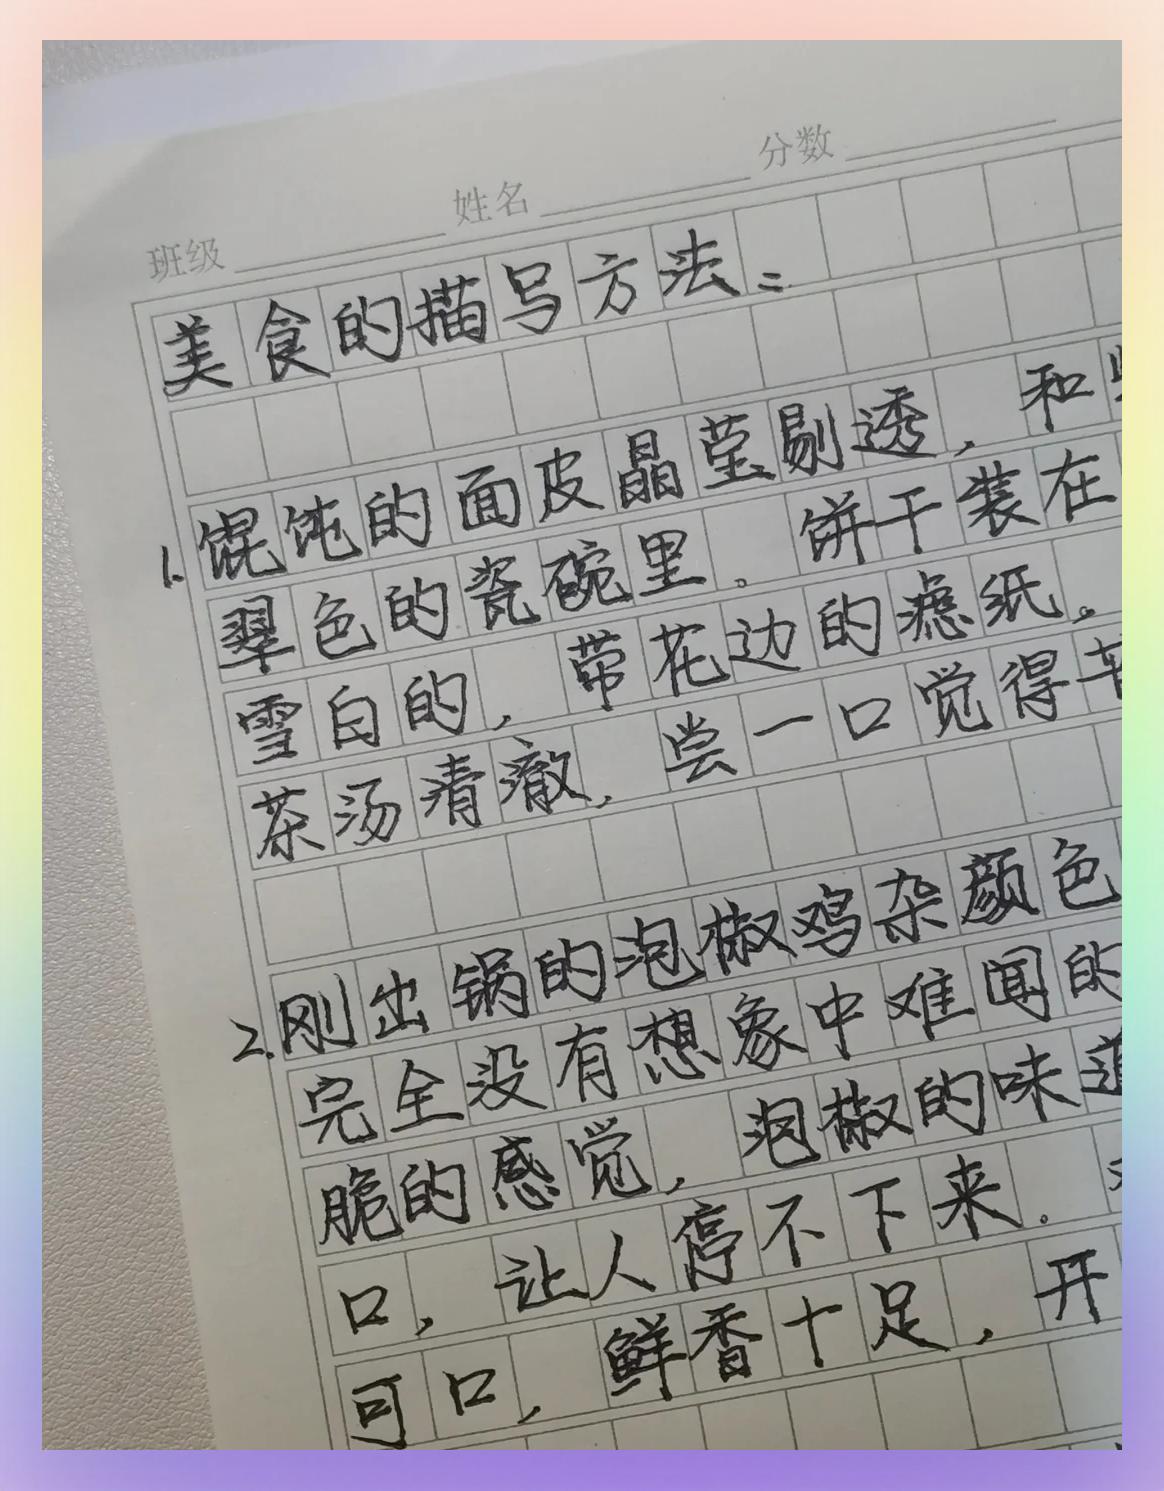 班级 姓名 分数
美食的描写方法:
1. 馄饨的面皮晶莹剔透，和
翠色的瓷碗里。饼干装在
雪白的，带花边的滤纸。
茶汤清澈，尝一口觉得
2. 刚出锅的泡椒鸡杂颜色
完全没有想象中难闻的
脆的感觉，泡椒的味道
口，让人停不下来。
可口，鲜香十足，开